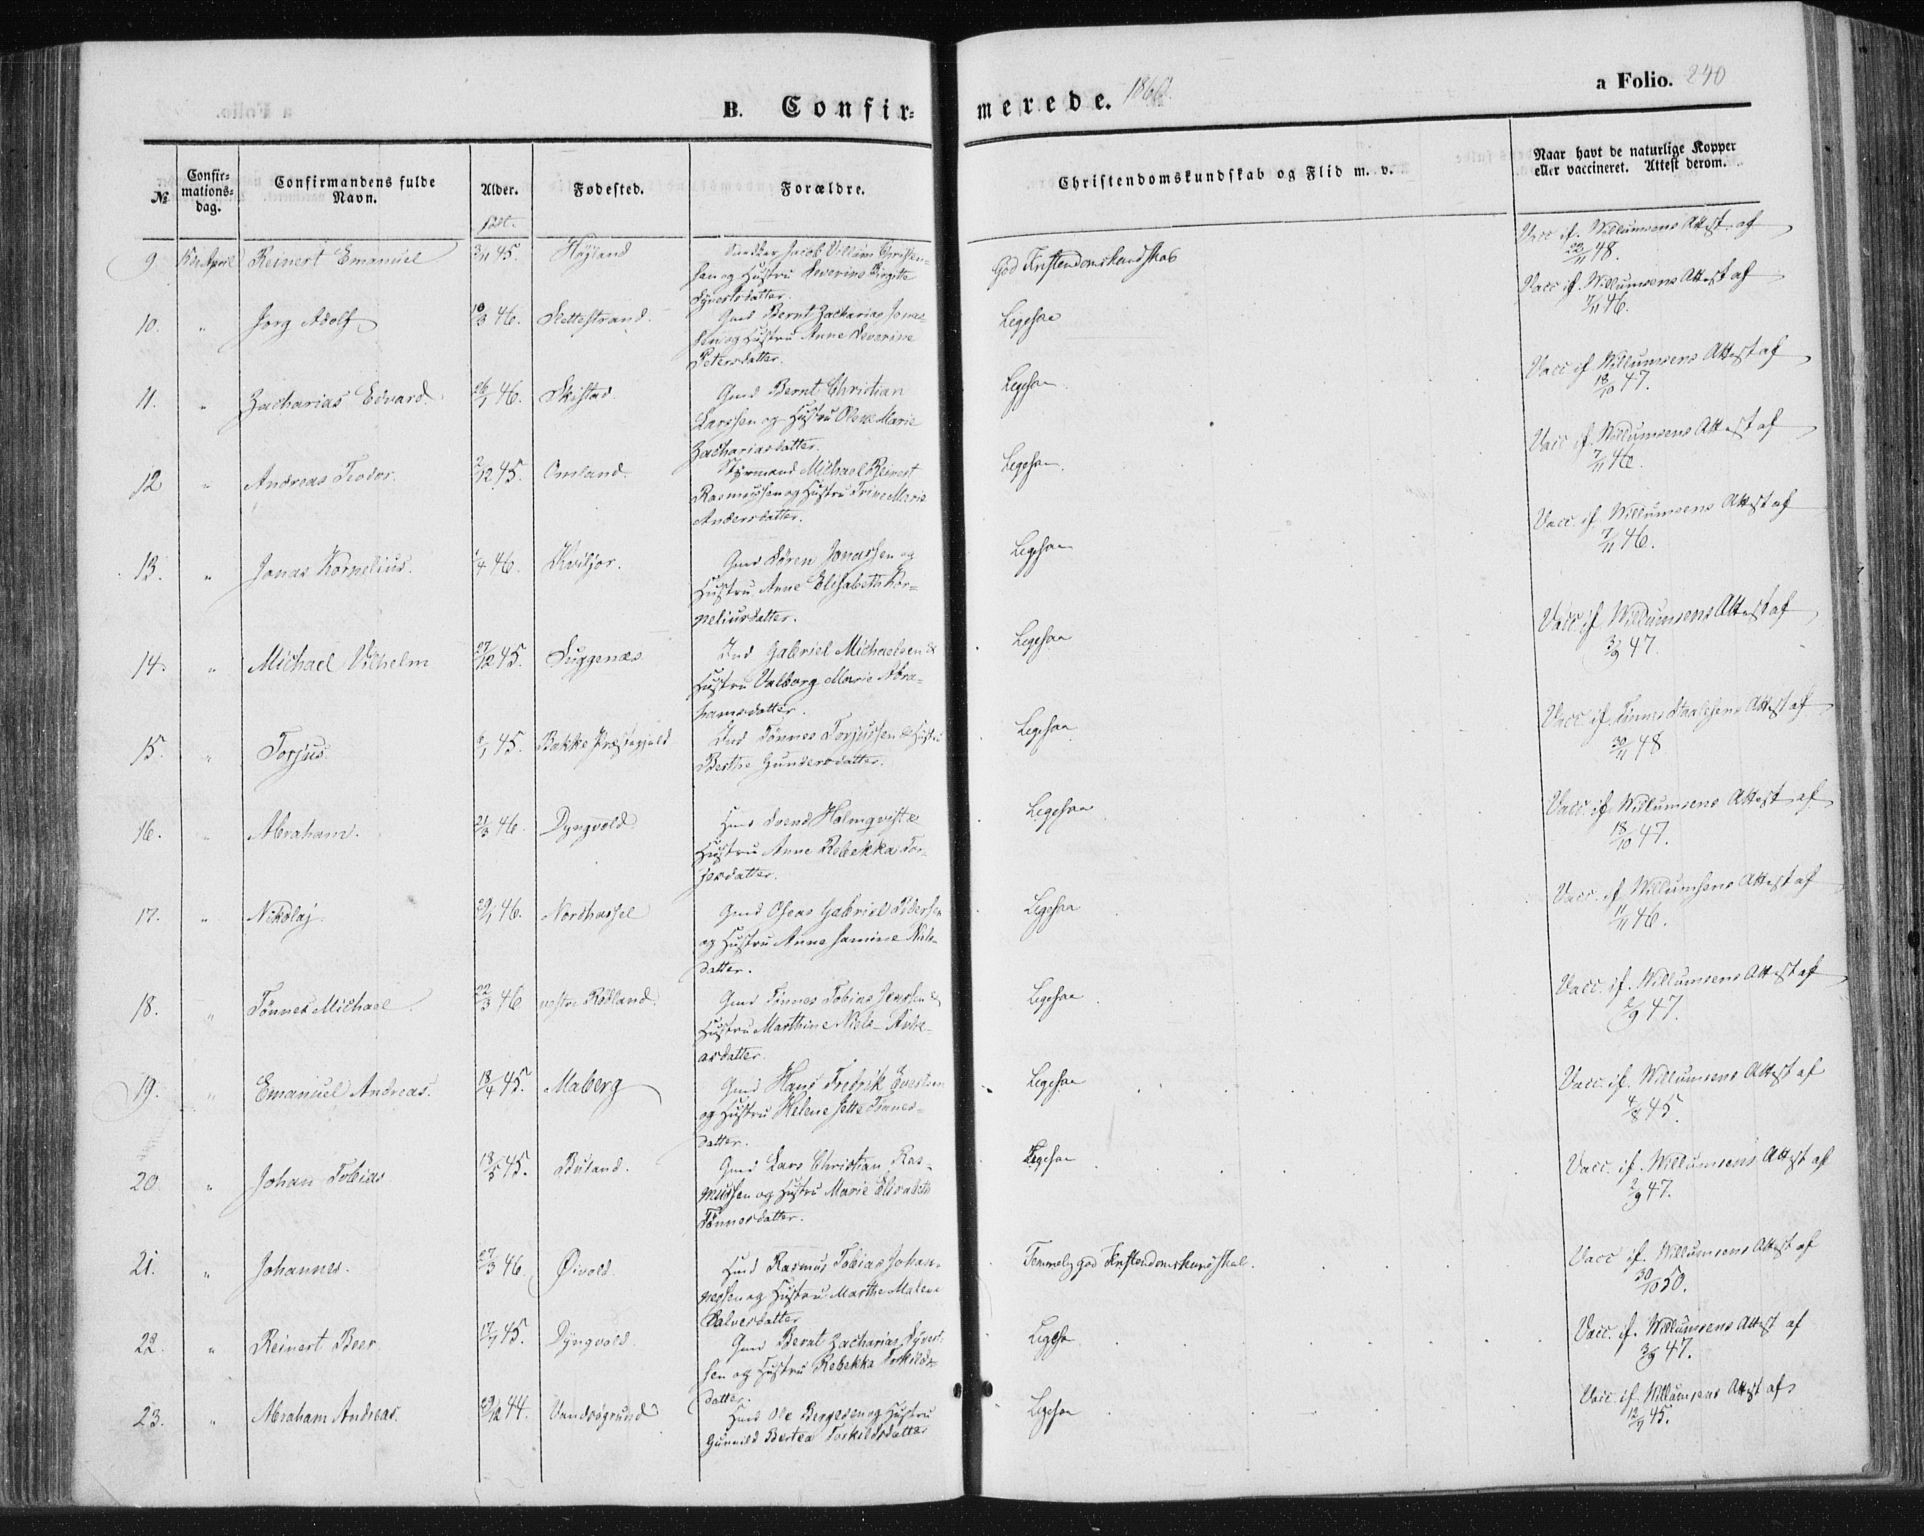 B. Confir=
merede. 186
a Folio. 240
№
Confir-
mations-
dag.
Confirmandens fulde
Navn.
Alder.
Fødested.
Forældre.
Christendomskundskab og Flid m. v.
Naar havt de naturlige Kopper
eller vaccineret. Attest derom.
født.
9 April Reinert Emanuel 3/11 45. Høyland
Jacob Christen-
sen og Hustru Severine Birgitte
Syvertsdatter.
God Kristendomskundskab
Vacc. if. Willumsens Attest af
22/11 48.
10. " Jørg Adolf 10/3 46. Slettestrand.
Gmd Bernt Zacharias Jonas-
sen og Hustru Anne Severine
Petersdatter.
Ligesaa
Vacc. if. Willumsens Attest af
7/11 46.
11. " Zacharias Edvard. 26/1 46. Skistad
Gmd Bernt Christian
Larssen og Hustru Olene Marie
Zachariasdatter.
Ligesaa
Vacc. if. Willumsens Attest af
18/10 47.
12 " Andreas Teodor. 2/12 45. Omland.
Styrmand Michael Reinert
Rasmussen og Hustru Trine Marie
Andersdatter.
Ligesaa.
Vacc. if. Willumsens Attest af
7/11 46.
13. " Jonas Kornelius. 1/4 46. Kviljor.
Gmd Søren Jonassen og
Hustru Anne Elisabeth Kor-
neliusdatter.
Ligesaa
Vacc. if. Willumsens Attest af
7/11 46.
14. " Michael Vilhelm 27/12 45. Luggenæs
Ind Gabriel Michaelsen &
Hustru Valborg Marie Abra-
hamsdatter.
Ligesaa
Vacc. if. Willumsens Attest af
3/9 47.
15. " Torjus. 6/1 45. Bakke Præstegjeld
Ind Tønnes Torjussen & Hustru
Berthe Gundersdatter.
Ligesaa
Vacc. if. Attest af
30/11 48
16. " Abraham. 21/3 46. Dyngvold.
Hmd Svend Holmqvist &
Hustru Anne Rebekka Tor-
jersdatter.
Ligesaa
Vacc. if. Willumsens Attest af
18/10 47.
17. " Nikolaj. 29/1 46. Nordhassel
Gmd Oseas Gabriel Pedersen
og Hustru Anne Samine Niels-
datter.
Ligesaa
Vacc. if. Willumsens Attest af
11/11 46.
18. " Tønnes Michael. 22/3 46 vestre Rødland.
Gmd Tønnes Tobias Jenssen &
Hustru Marthine Niels-Andre-
asdatter.
Ligesaa
Vacc. if. Willumsens Attest af
2/9 47.
19. " Emanuel Andreas. 18/4 45. Maberg
Gmd Hans Fredrik Evertsen
og Hustru Helene Jette Tønnes-
datter.
Ligesaa
Vacc. if. Willumsens Attest af
4/8 45.
20. " Johan Tobias 18/5 45. Buland.
Gmd Lars Christian Ras-
mussen og Hustru Marie Elisabeth
Tønnesdatter.
Ligesaa
Vacc. if. Willumsens Attest af
2/9 47.
21. " Johannes. 27/3 46. Øivold.
Hmd Rasmus Tobias Johan-
nessen og Hustru Marthe Malene
Salvesdatter
Temmelig god Kristendomskundskab.
Vacc. if. Willumsens Attest af
30/10 50.
22. " Reinert Beer. 17/7 45. Dyngvold.
Gmd Bernt Zacharias Syvert-
sen og Hustru Rebekka Torkilds-
datter.
Ligesaa
Vacc. if. Willumsens Attest af
3/9 47.
23. " Abraham Andreas. 29/12 44. Vandsøgrund
Hmd Ole Bergesen og Hustru
Gunvild Bertea Torkildsdatter
Ligesaa
Vacc. if. Willumsens Attest af
12/9 45.